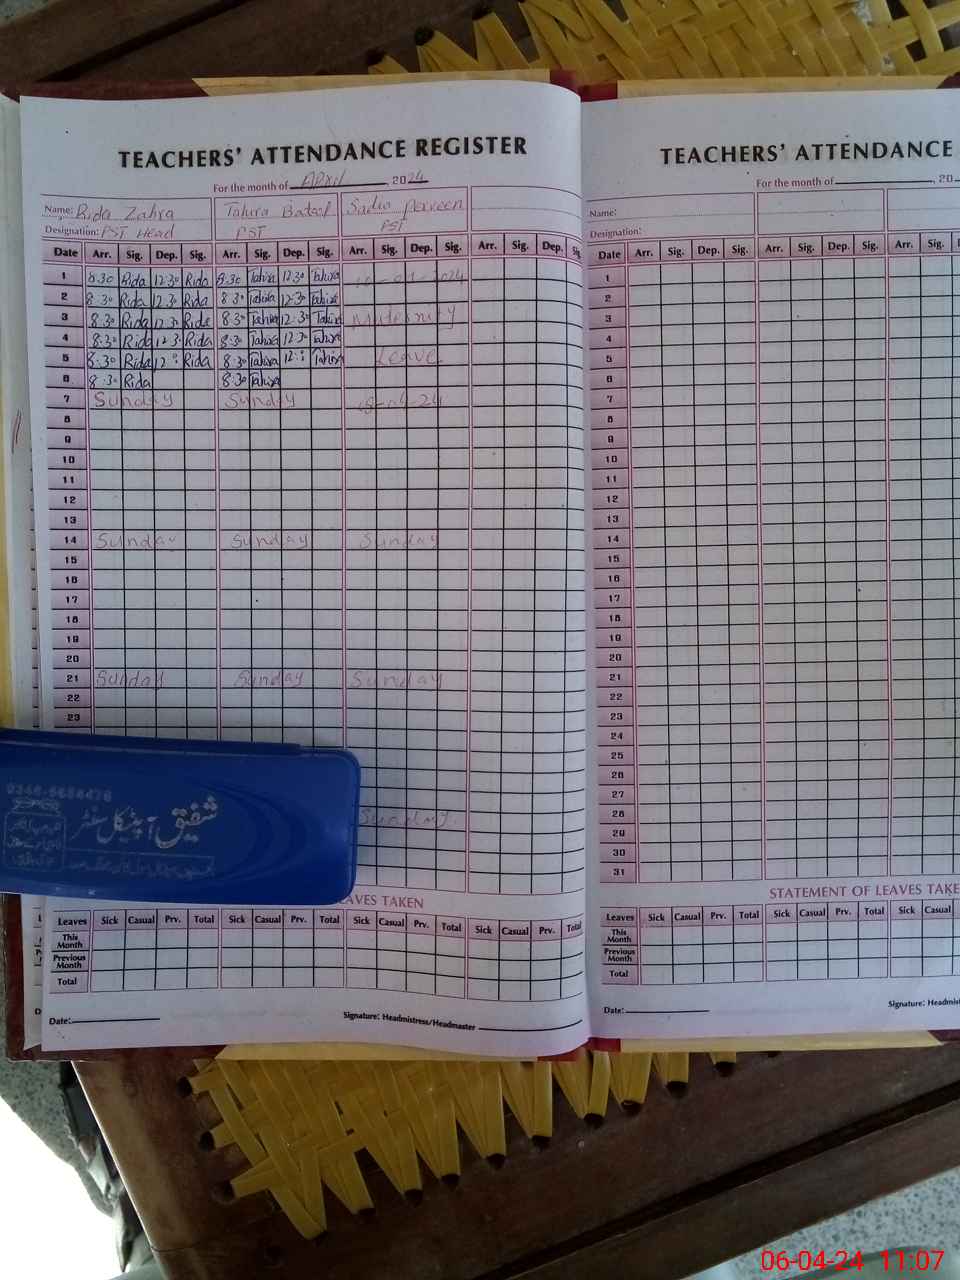 TEACHERS' ATTENDANCE REGISTER
For the month of April, 2024
Name: Rida Zahra Tahira Batool Sadia Perveen
Designation: PST Head PST PST
Date Arr. Sig. Dep. Sig. Arr. Sig. Dep. Sig. Arr. Sig. Dep. Sig. Arr. Sig. Dep. Sig.
1 8:30 Rida 12:30 Rida 8:30 Tahira 12:30 Tahira
2 8:30 Rida 12:30 Rida 8:30 Tahira 12:30 Tahira
3 8:30 Rida 12:30 Rida 8:30 Tahira 12:30 Tahira Maternity
4 8:30 Rida 12:30 Rida 8:30 Tahira 12:30 Tahira
5 8:30 Rida 12:00 Rida 8:30 Tahira 12:00 Tahira Leave
6 8:30 Rida 8:30 Tahira
7 Sunday Sunday
8
9
10
11
12
13
14 Sunday Sunday Sunday
15
16
17
18
19
20
21 Sunday Sunday Sunday
22
23
Sunday
LEAVES TAKEN
Leaves Sick Casual Prv. Total Sick Casual Prv. Total Sick Casual Prv. Total Sick Casual Prv. Total
This Month
Previous Month
Total
Date:
Signature: Headmistress/Headmaster
TEACHERS' ATTENDANCE
For the month of , 20
Name:
Designation:
Date Arr. Sig. Dep. Sig. Arr. Sig. Dep. Sig. Arr. Sig.
1
2
3
4
5
6
7
8
9
10
11
12
13
14
15
16
17
18
19
20
21
22
23
24
25
26
27
28
29
30
31
STATEMENT OF LEAVES TAKE
Leaves Sick Casual Prv. Total Sick Casual Prv. Total Sick Casual
This Month
Previous Month
Total
Date:
Signature: Headmist
شفیق آپٹیکل سنٹر
06-04-24 11:07